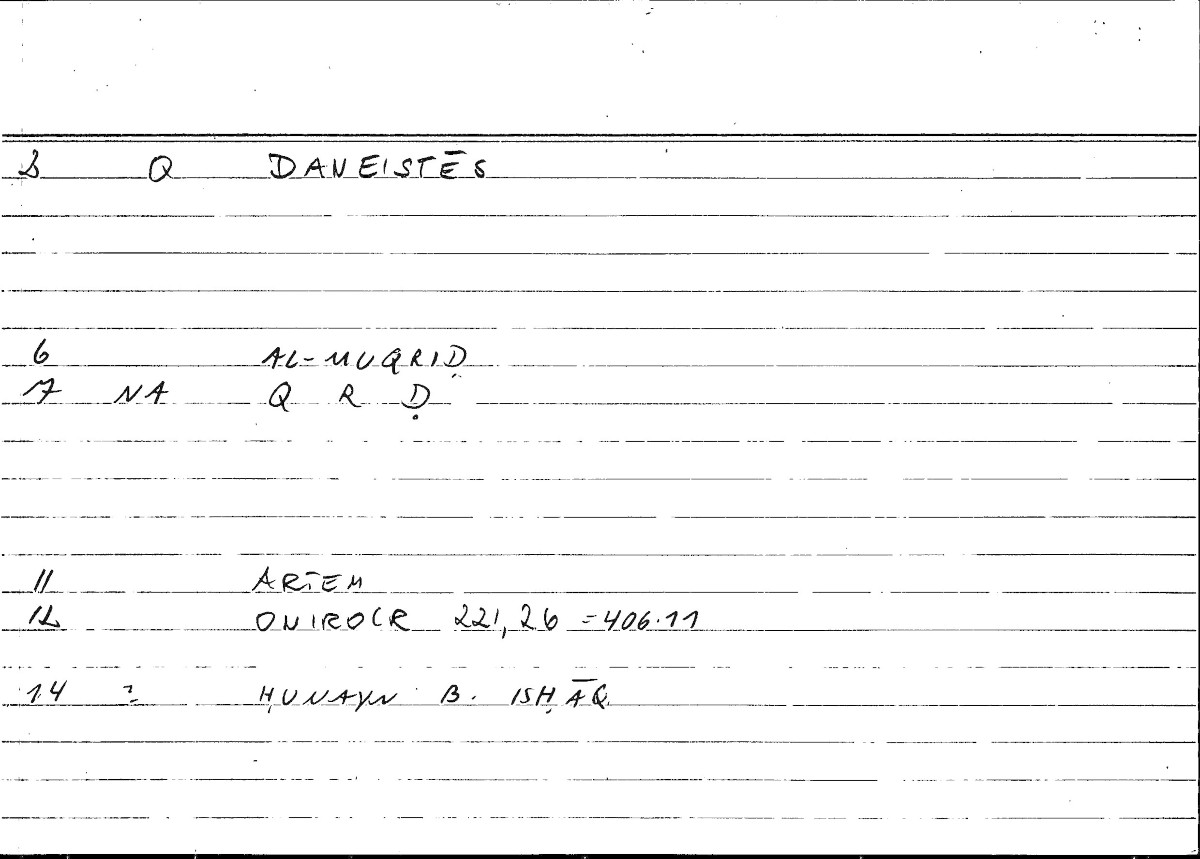 3 Q DANEISTĒS
6 AL-MUQRIḌ
7 NA Q R Ḍ
11 ARTEM
12 ONIROCR 221, 26 = 406.11
14 ḤUNAYN B. ISḤĀQ